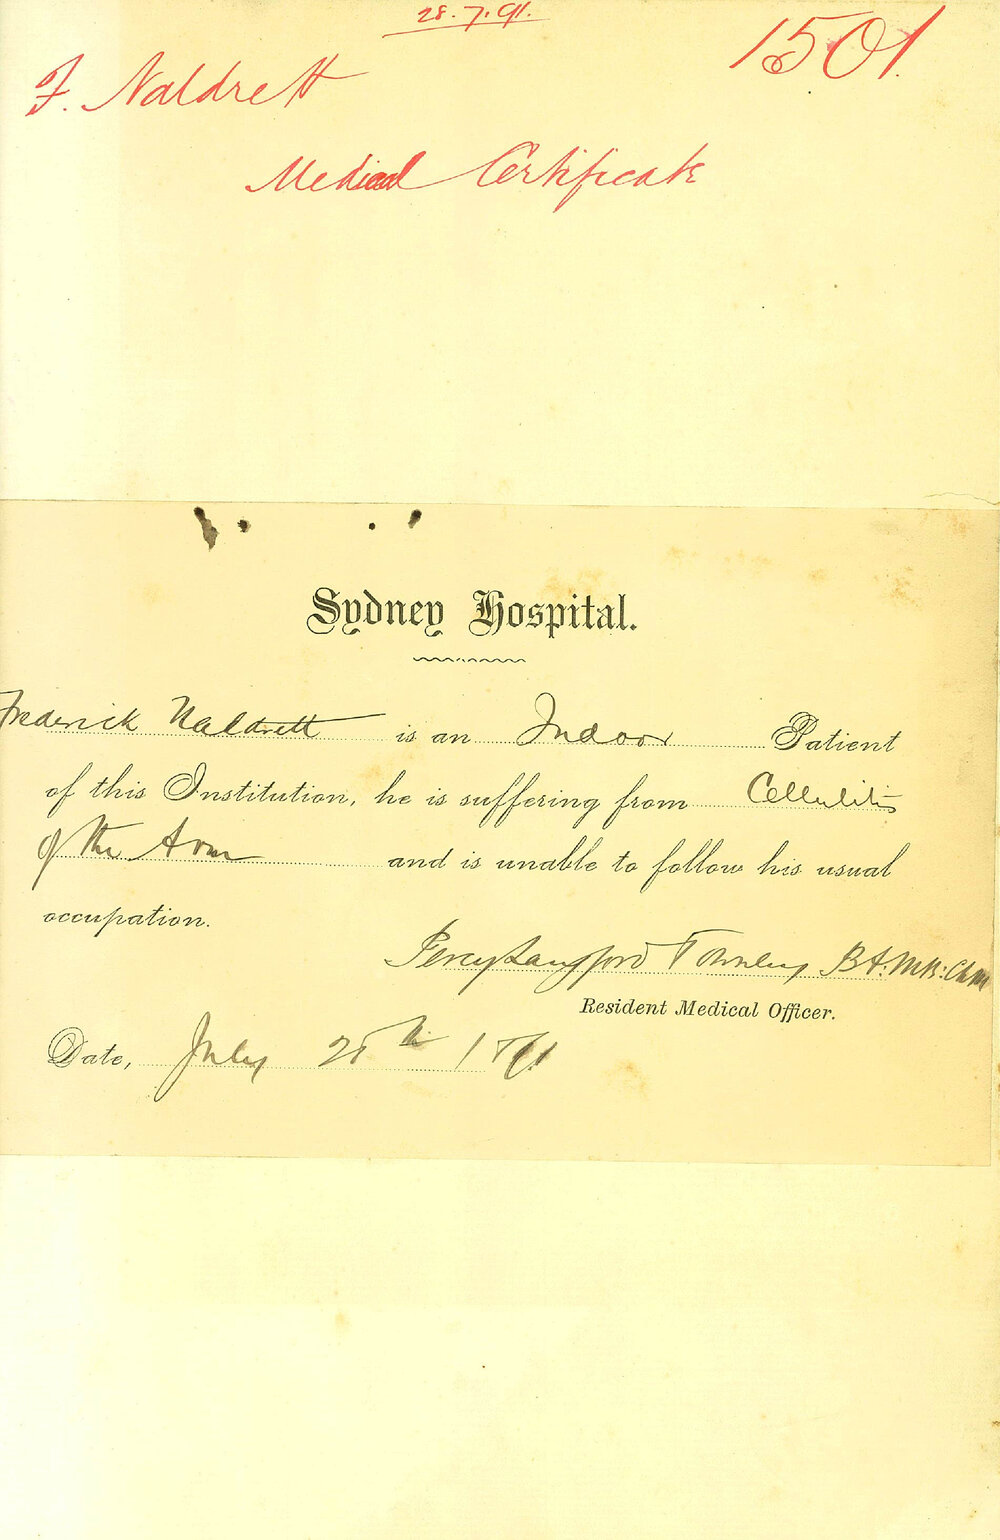 28.7.91.
1501.
F. Naldrett
Medical Certificate
Sydney Hospital.
Frederick Naldrett is an Indoor Patient
of this Institution, he is suffering from Cellulitis
of the Arm and is unable to follow his usual
occupation.
Percy Langford Townley BA: MB: ChM
Resident Medical Officer.
Date, July 28th 1891